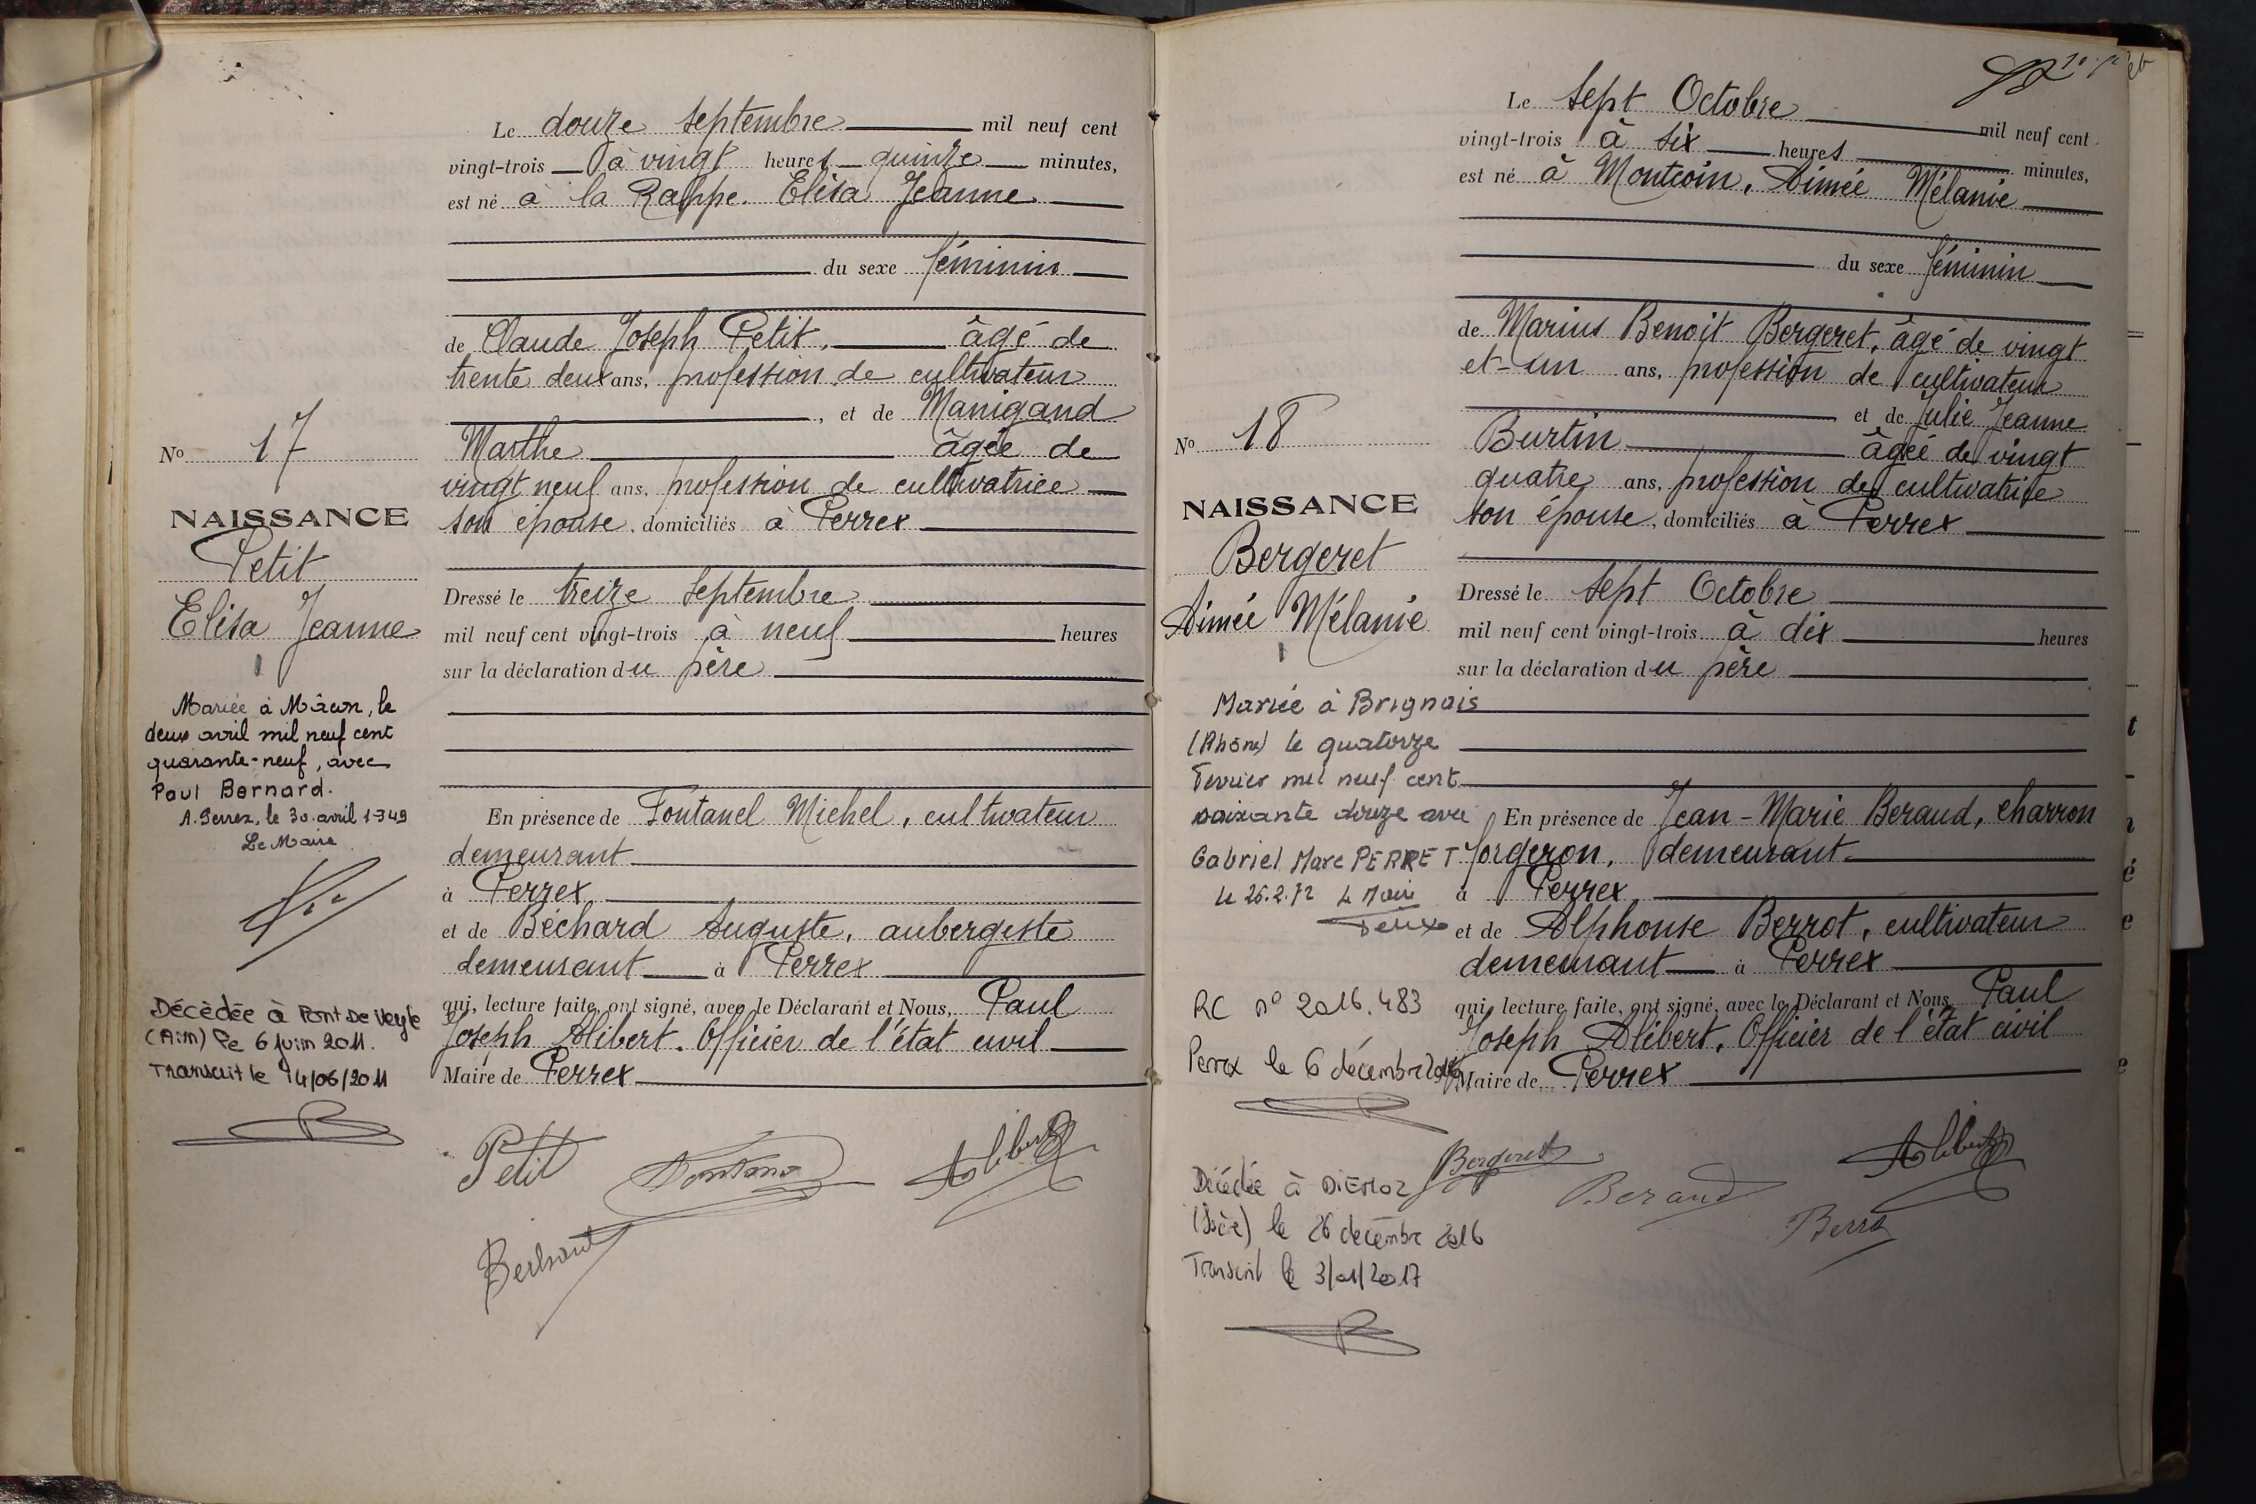 Le douze septembre mil neuf cent
vingt-trois à vingt heures quinze minutes,
est né à la Rappe. Elisa Jeanne
du sexe féminin
de Claude Joseph Petit, âgé de
trente deux ans, profession de cultivateur
, et de Manigand
Marthe âgée de
vingt neuf ans, profession de cultivatrice
son épouse, domiciliés à Perrex
Dressé le treize septembre
mil neuf cent vingt-trois à neuf heures
sur la déclaration du père
En présence de Fontanel Michel, cultivateur
demeurant
à Perrex
et de Béchard Auguste, aubergiste
demeurant à Perrex
qui, lecture faite, ont signé, avec le Déclarant et Nous, Paul
Joseph Alibert. Officier de l'état civil
Maire de Perrex
Petit
Alibert
No 17
NAISSANCE
Petit
Elisa Jeanne
Mariée à Mâcon, le
deux avril mil neuf cent
quarante-neuf, avec
Paul Bernard.
A. Perrex, le 30 avril 1949
Le Maire
Décédée à Pont de Veyle
(Ain) le 6 juin 2011.
Transcrit le 14/06/2011
Le sept Octobre mil neuf cent
vingt-trois à six heures minutes,
est né à Montcoin, Aimée Mélanie
du sexe féminin
de Marius Benoit Bergeret, âgé de vingt
et-un ans, profession de cultivateur
et de Julie Jeanne
Burtin âgée de vingt
quatre ans, profession de cultivatrice
son épouse, domiciliés à Perrex
Dressé le sept Octobre
mil neuf cent vingt-trois à dix heures
sur la déclaration du père
En présence de Jean-Marie Beraud, charron
forgeron, demeurant
à Perrex
et de Alphonse Berrot, cultivateur
demeurant à Perrex
qui, lecture faite, ont signé, avec le Déclarant et Nous, Paul
Joseph Alibert, Officier de l'état civil
Maire de Perrex
Bergeret
Beraud
Alibert
No 18
NAISSANCE
Bergeret
Aimée Mélanie
Mariée à Brignais
(Rhône) le quatorze
Février mil neuf cent
soixante douze avec
Gabriel Marc PERRET
le 26.2.72 Le Maire
RC n° 2016.483
Perrex le 6 décembre 2016
Décédée à DIEMOZ
(Isère) le 26 décembre 2016
Transcrit le 3/01/2017